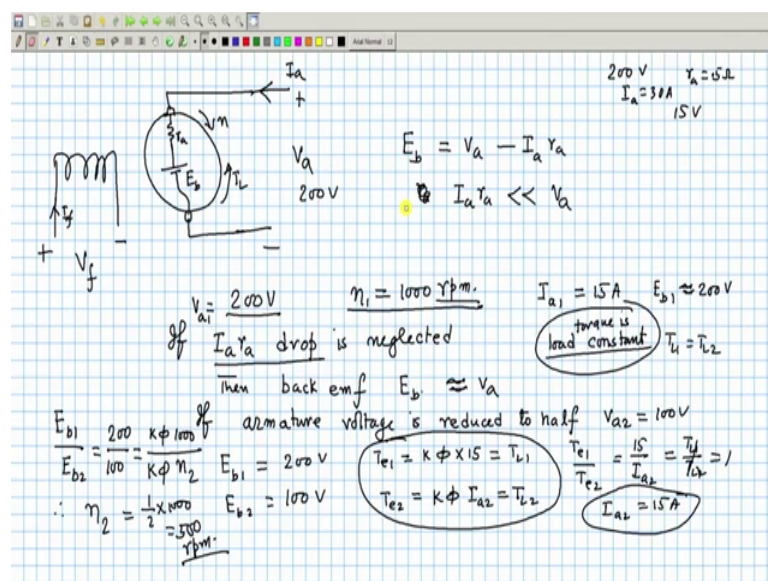 Arial Normal 12
200 V r_a = .5Ω
I_a = 30A
15V
I_a
+
n
r_a
E_b
T_L
V_a
200V
-
I_f
+ V_f -
E_b = V_a - I_a r_a
I_a r_a << V_a
V_a1 = 200V n_1 = 1000 rpm. I_a1 = 15A E_b1 ≈ 200V
If I_a r_a drop is neglected
torque is
load constant T_L1 = T_L2
Then back emf E_b ≈ V_a
If armature voltage is reduced to half V_a2 = 100V
E_b1/E_b2 = 200/100 = Kφ1000/Kφ n_2
E_b1 = 200V
E_b2 = 100V
∴ n_2 = 1/2 × 1000
= 500
rpm.
T_e1 = Kφ × 15 = T_L1
T_e2 = Kφ I_a2 = T_L2
T_e1/T_e2 = 15/I_a2 = T_L1/T_L2 = 1
I_a2 = 15A